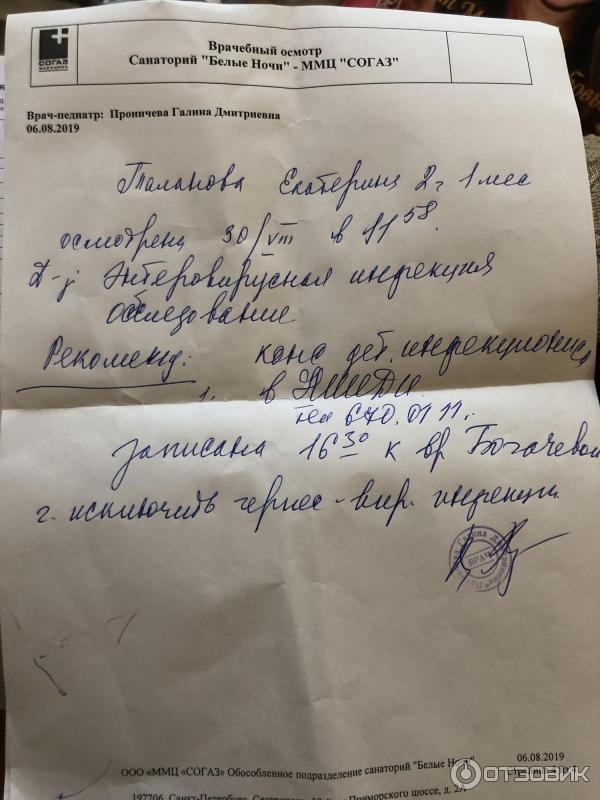 СОГАЗ
МЕДИЦИНА
Врачебный осмотр
Санаторий "Белые Ночи" - ММЦ "СОГАЗ"
Врач-педиатр: Проничева Галина Дмитриевна
06.08.2019
Таланова Екатерина 2 г 1 мес
осмотрена 30/VIII в 11 58
Д-з Энтеровирусная инфекция
обследование.
Рекоменд: конс дет. инфекциониста
1. в НИИДИ.
тел 670.01 11.
записана 16 30 к вр Богачевой
г. исключить герпес-вир. инфекци
ВРАЧ
ООО «ММЦ «СОГАЗ» Обособленное подразделение санаторий "Белые Ночи"
06.08.2019
197706, Санкт-Петербург, Сестрорецк, Приморского шоссе, д.
ОТЗОВИК